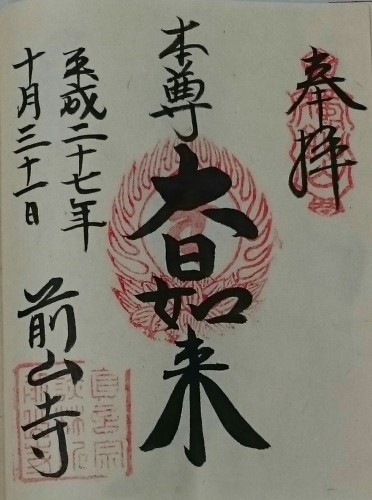 奉拝
本尊
大日如来
平成二十七年
十月三十一日
前山寺
真言宗